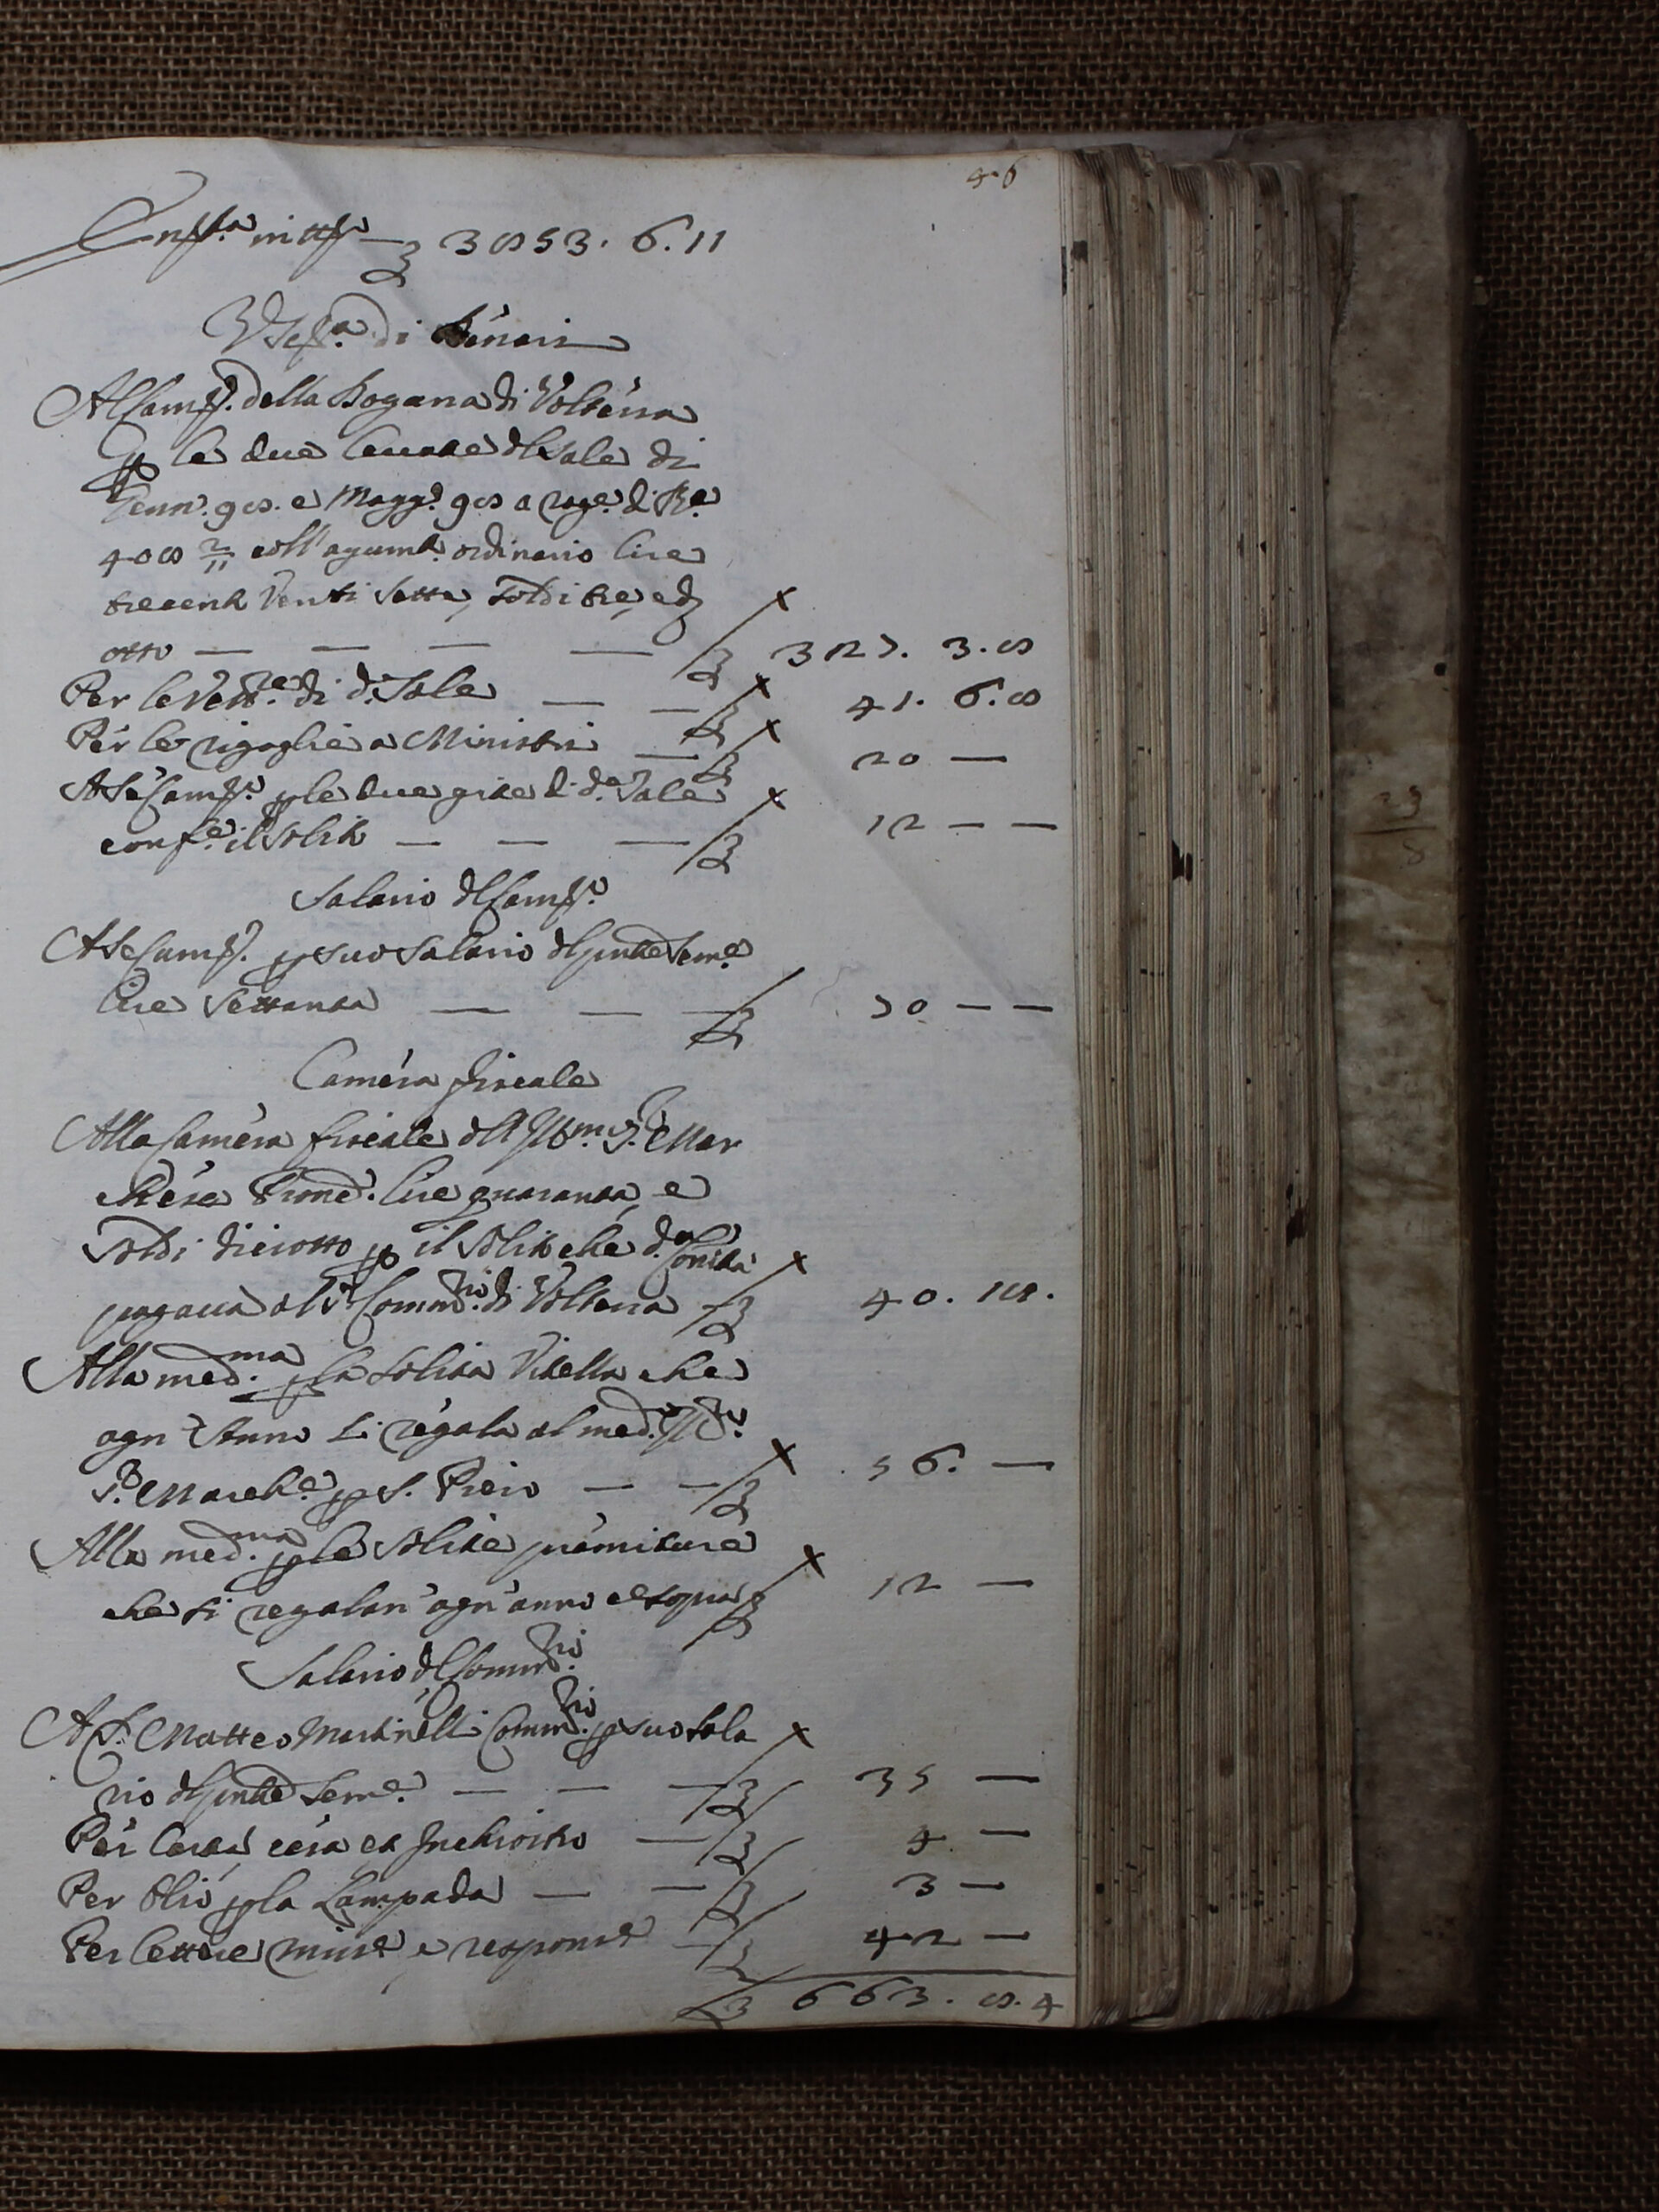 46
Ent.ta in tt.o — £ 3853. 6. 11
Vscita di Denari
Al Camar.o della Dogana di Volterra
p le due leuate del Sale di
Genn.o 98. e Magg.o 98 a rag.e di lb.e
408 2/11 coll'agum.to ordinario lire
trecento Venti Sette, soldi tre, e d
otto — — — — £ 327. 3. 8
Per le Vett.re di d.o Sale — — £ 41. 6. 8
Per le rigaglie a Ministri — £ 20 —
A Se Camar.o p le due gite di d.o Sale
conf.e il Solito — — — £ 12 — —
Salario del Camar.o
A Se Camar.o p suo Salario del pnte Sem.e
lire Settanta — — — £ 70 — —
Camera fiscale
Alla Camera fiscale dell'Ill.mo S. Mar
chese Pron.e lire quaranta, e
soldi dieiotto p il solito che d.a Com.tà
pagaua al S.r Comm.rio di Volterra £ 40. 18.
Alla med.ma p la solita Vitella che
ogn'Anno si regala al med. Ill.mo
S.r March.e p S. Piero — — £ 56. —
Alla med.ma p le solite primiture
che si regalan'ogn'anno e sopra £ 12 —
Salario del Comm.rio
A S.r Matteo Martinelli Comm.rio p suo sala
rio del pnte Sem.e — — — £ 35 —
Per Carta, cera et Inchiostro — £ 4 —
Per Olio p la Lampada — — £ 3 —
Per lettere misse e response — £ 42 —
£ 663. 8. 4